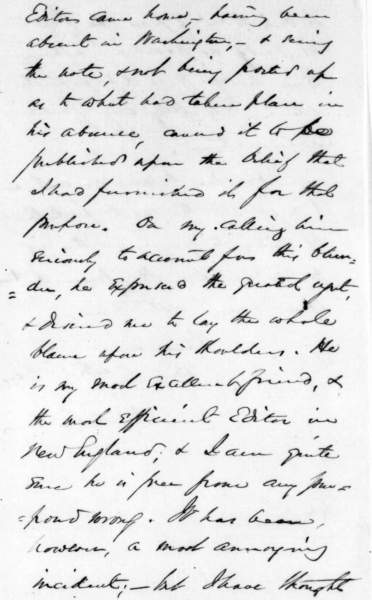 Editor came home, – having been
absent in Washington, – & seeing
the note, & not being posted up
as to what had taken place in
his absence, caused it to be
published upon the belief that
I had furnished it for that
purpose. On my calling him
seriously to account for this blun-
= der, he expressed the greatest regret,
& desired me to lay the whole
blame upon his shoulders. He
is my most excellent friend, &
the most efficient Editor in
New England; & I am quite
sure he is free from any pur=
=posed wrong. It has been,
however, a most annoying
incident; – but I have thought